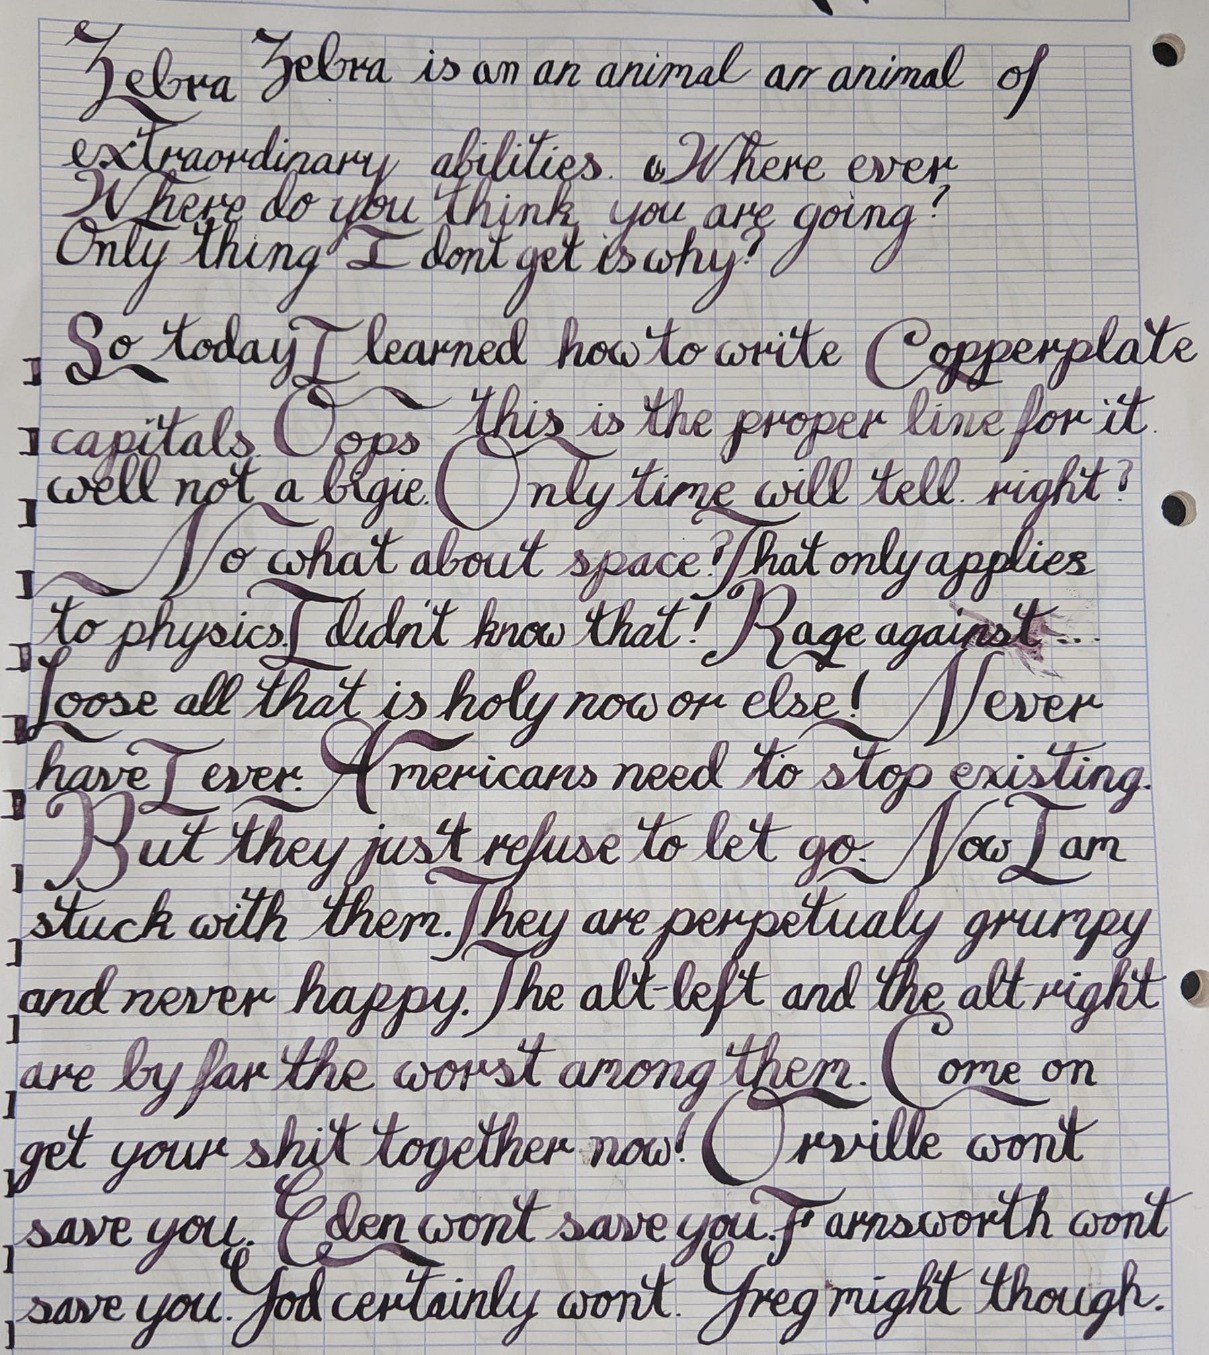 Zebra Zebra is an an animal an animal of
extraordinary abilities. Where ever
Where do you think you are going?
Only thing I dont get is why?
So today I learned how to write Copperplate
capitals. Oops this is the proper line for it.
well not a bigie. Only time will tell. right?
No what about space? That only applies
to physics. I didn't know that! Rage against...
Loose all that is holy now or else! Never
have I ever. Americans need to stop existing.
But they just refuse to let go. Now I am
stuck with them. They are perpetualy grumpy
and never happy. The alt-left and the alt right
are by far the worst among them. Come on
get your shit together now! Orville wont
save you. Eden wont save you. Farnsworth wont
save you. God certainly wont. Greg might though.